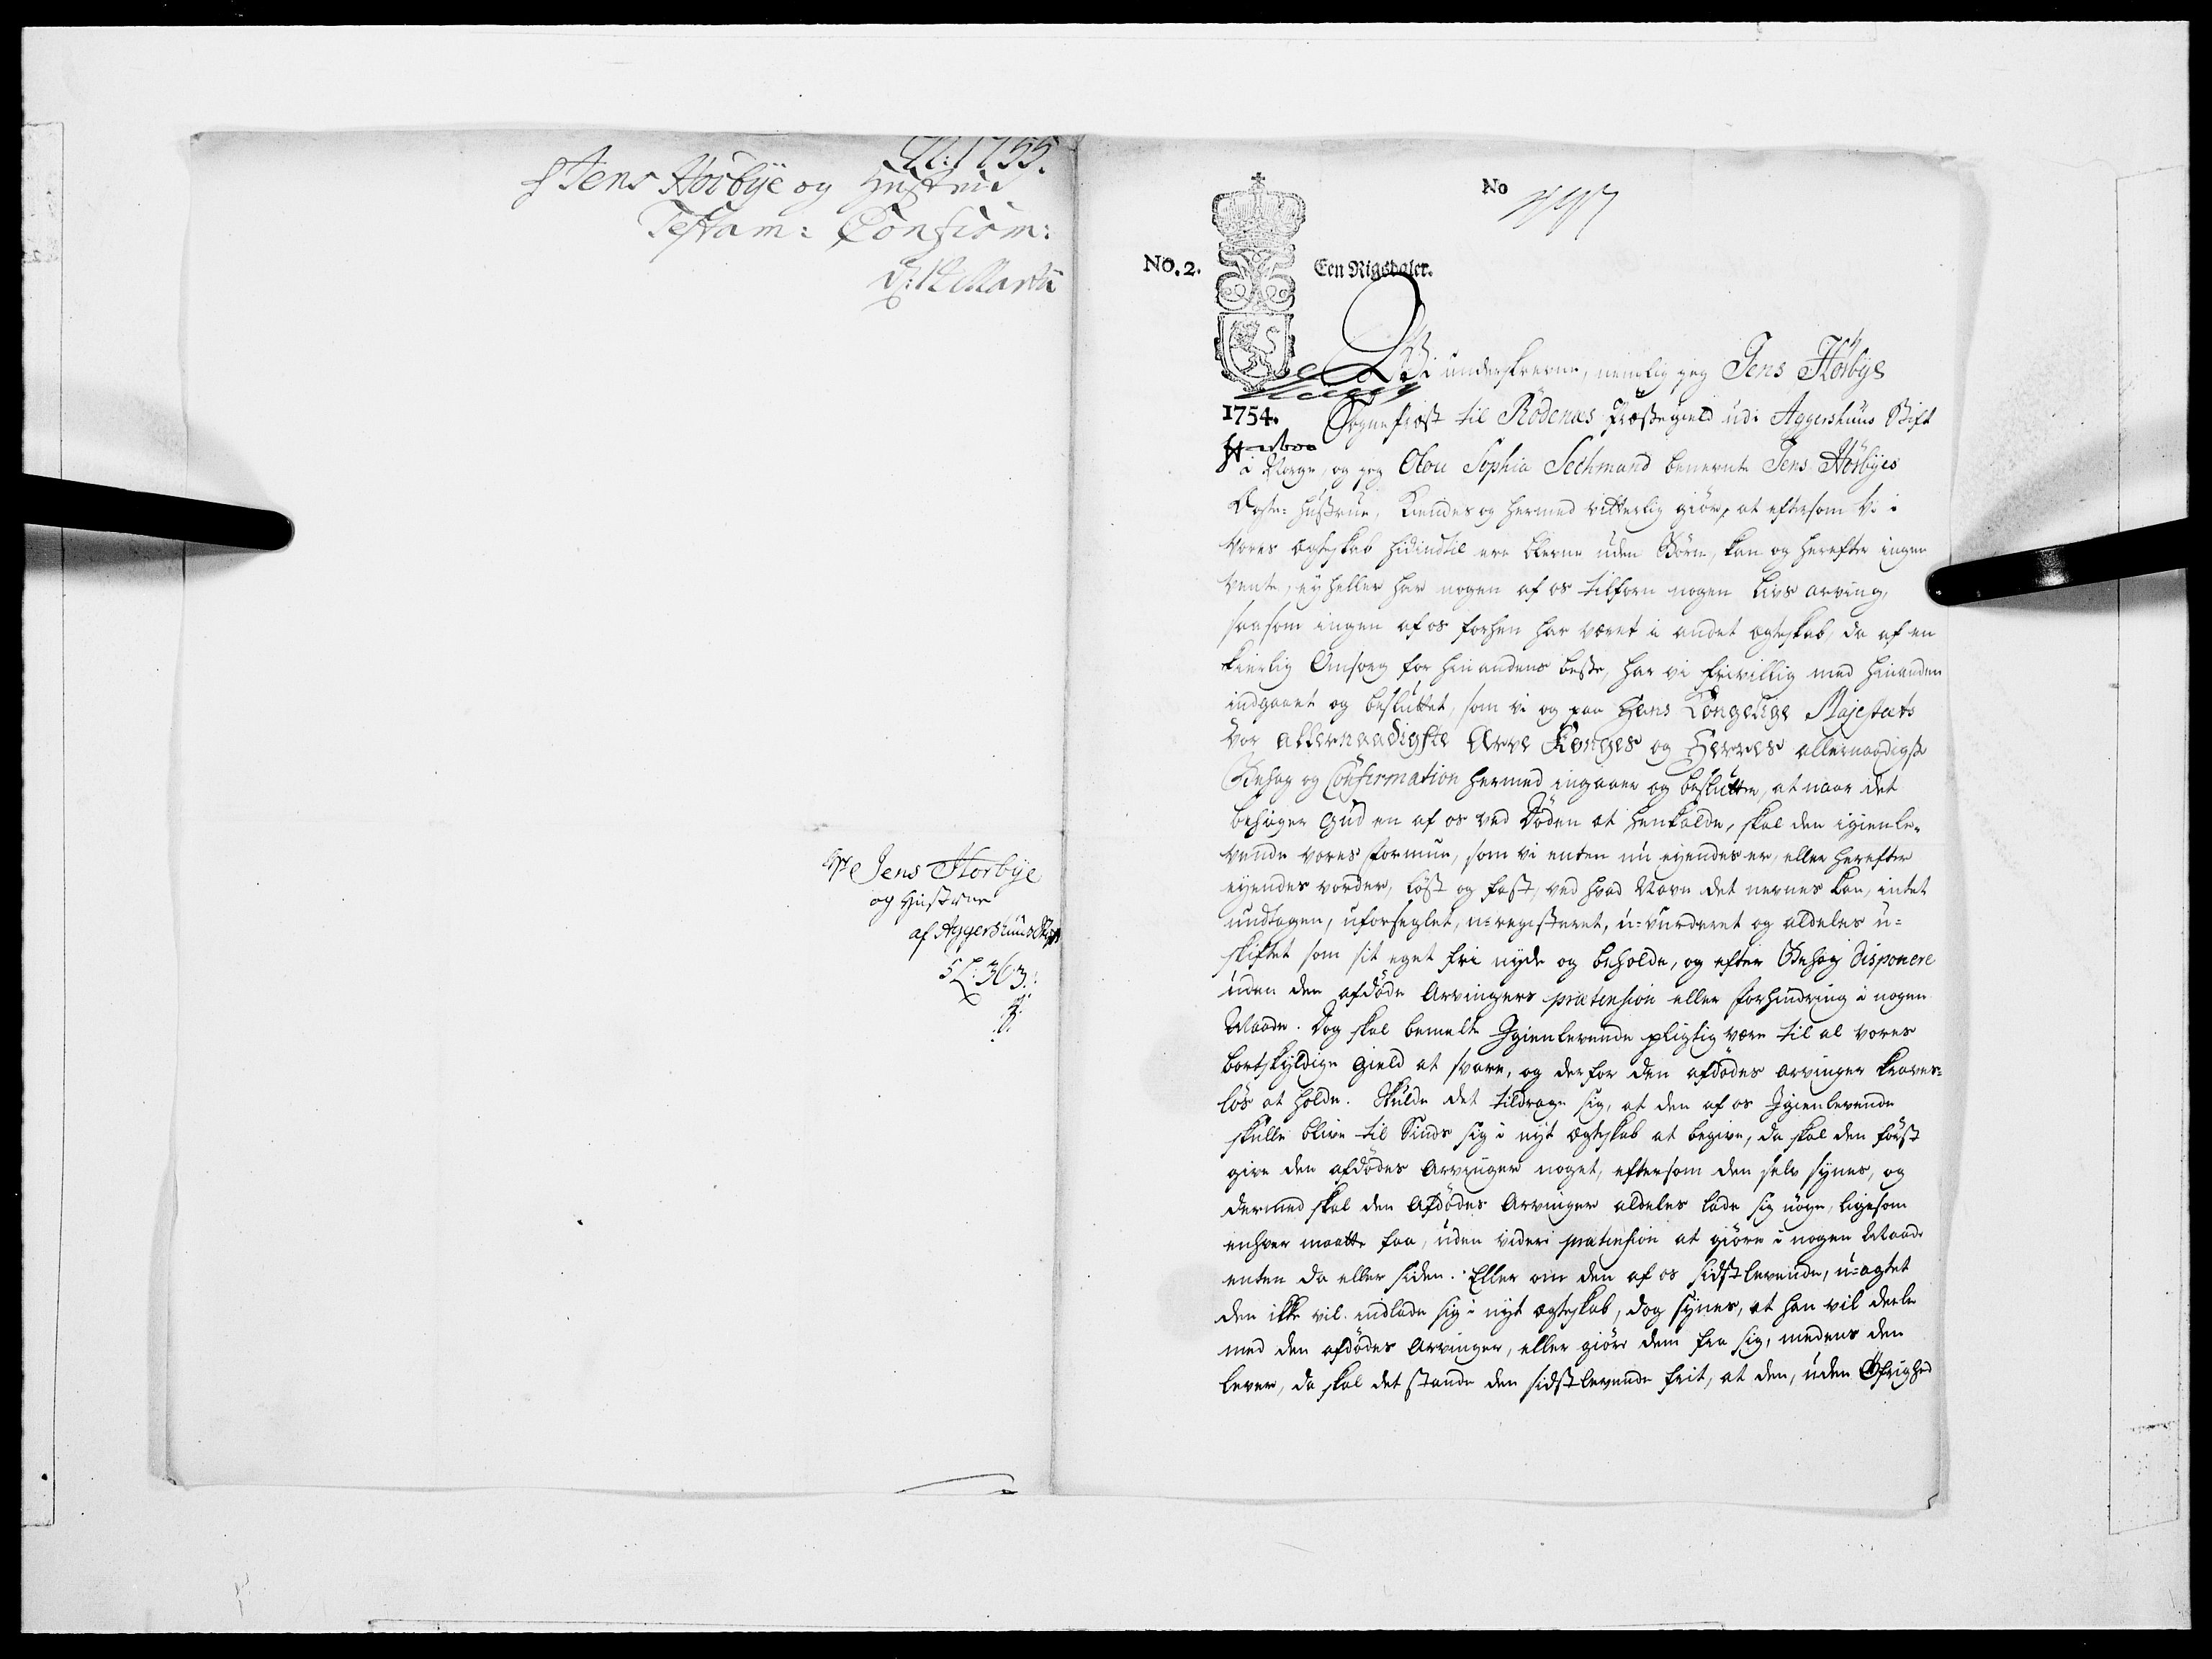 1755.
Jens Hörbÿe og Hustrue
Testam: Confirm:
d: 12 Martii
Hr Jens Hörbÿe
og Hustrue
af Aggershuus Stift
5 L: 363.
No
No. 2.
Een Rigsdaler.
Wi underskrevne, nemlig jeg Jens Hörbÿe
1754.
Sognepræst til Rödenæs Præstegield udi Aggershuus Stift
i Norge, og jeg Olou Sophia Sechmand benevnte Jens Hörbÿes
Ægte-Hustrue, Kiendes og hermed vitterlig giör, at eftersom Vi i
Vores ægteskab hidindtil ere blevne uden Börn, kan og herefter ingen
vente, ey heller har nogen af os tilforn nogen Livs arving,
saasom ingen af os forhen har været i andet ægteskab, da af en
kierlig Omsorg for hinandens beste, har vi frivillig med hinanden
indgaaet og besluttet, som vi og paa Hans Kongelige Majestæts
Vor allernaadigste Arve Konges og Herres allernaadigste
Behag og Confirmation hermed ingaaer og beslutter, at naar det
behager Gud en af os ved Döden at henkalde, skal den igienle-
vende vores formue, som vi enten nu eyendes er, eller herefter
eyendes vorder, löst og fast, ved hvad Navn det nevnes kan, intet
undtagen, uforseglet, u-registeret, u-vurderet og aldeles u-
skiftet som sit eget frie nyde og beholde, og efter Behag disponere
uden den afdöde Arvingers prætension eller forhindring i nogen
Maade. Dog skal bemelte Igienlevende pligtig være til al vores
bortskyldige Gield at svare, og derfor den afdödes arvinger kraves-
lös at holde. Skulde det tildrage sig, at den af os Igienlevende
skulle blive til Sinds sig i nyt ægteskab at begive, da skal den först
give den afdödes Arvinger noget, eftersom den selv synes, og
dermed skal den Afdödes Arvinger aldeles lade sig nöye, ligesom
enhver maatte faa, uden videre prætension at giöre i nogen Maade
enten da eller siden. Eller om den af os sidstlevende, u-agtet
den ikke vil indlade sig i nyt ægteskab, dog synes, at han vil deele
med den afdödes Arvinger, eller giöre dem fra sig, medens den
lever, da skal det staande den sidstlevende frit, at den, uden Öfrighed